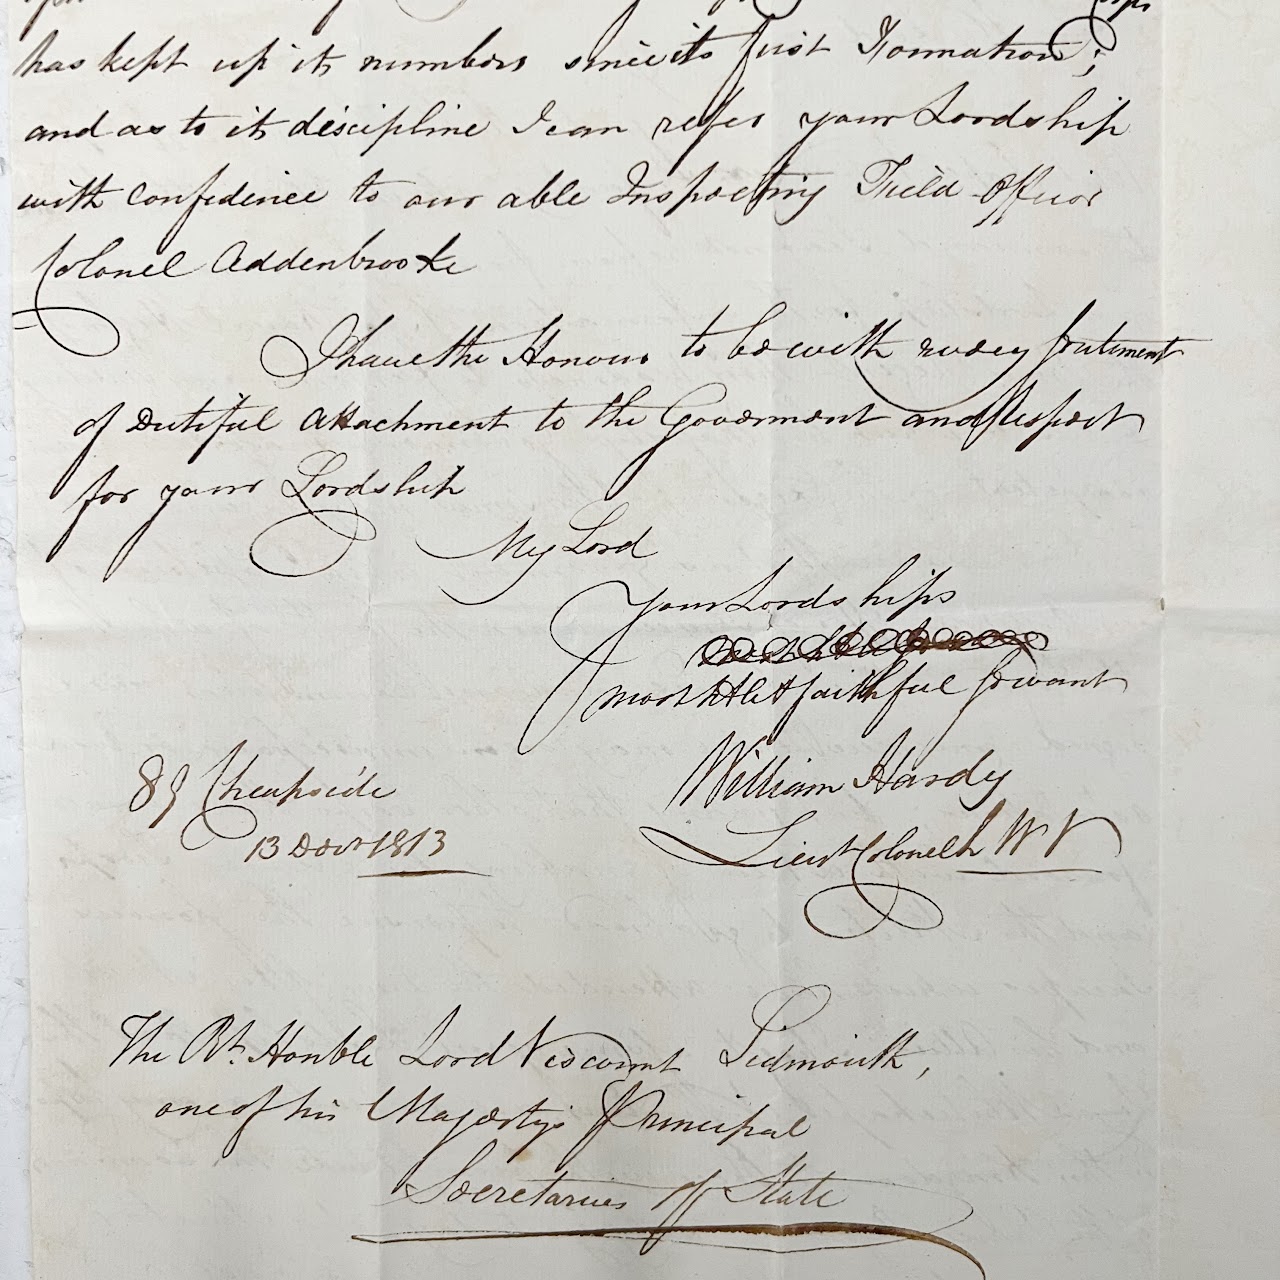 has kept up its numbers since its first Formation;
and as to its discipline I can refer your Lordship
with confidence to our able Inspecting Field Officer
Colonel Addenbrooke
I have the Honour to be with every sentiment
of Dutiful Attachment to the Government and Respect
for your Lordship
My Lord
Your Lordships
most Hble & faithful servant
William Hardy
Lieut Colonel
89 Cheapside
13 Decr 1813
The Rt. Honble Lord Viscount Sidmouth,
one of his Majesty's Principal
Secretaries of State